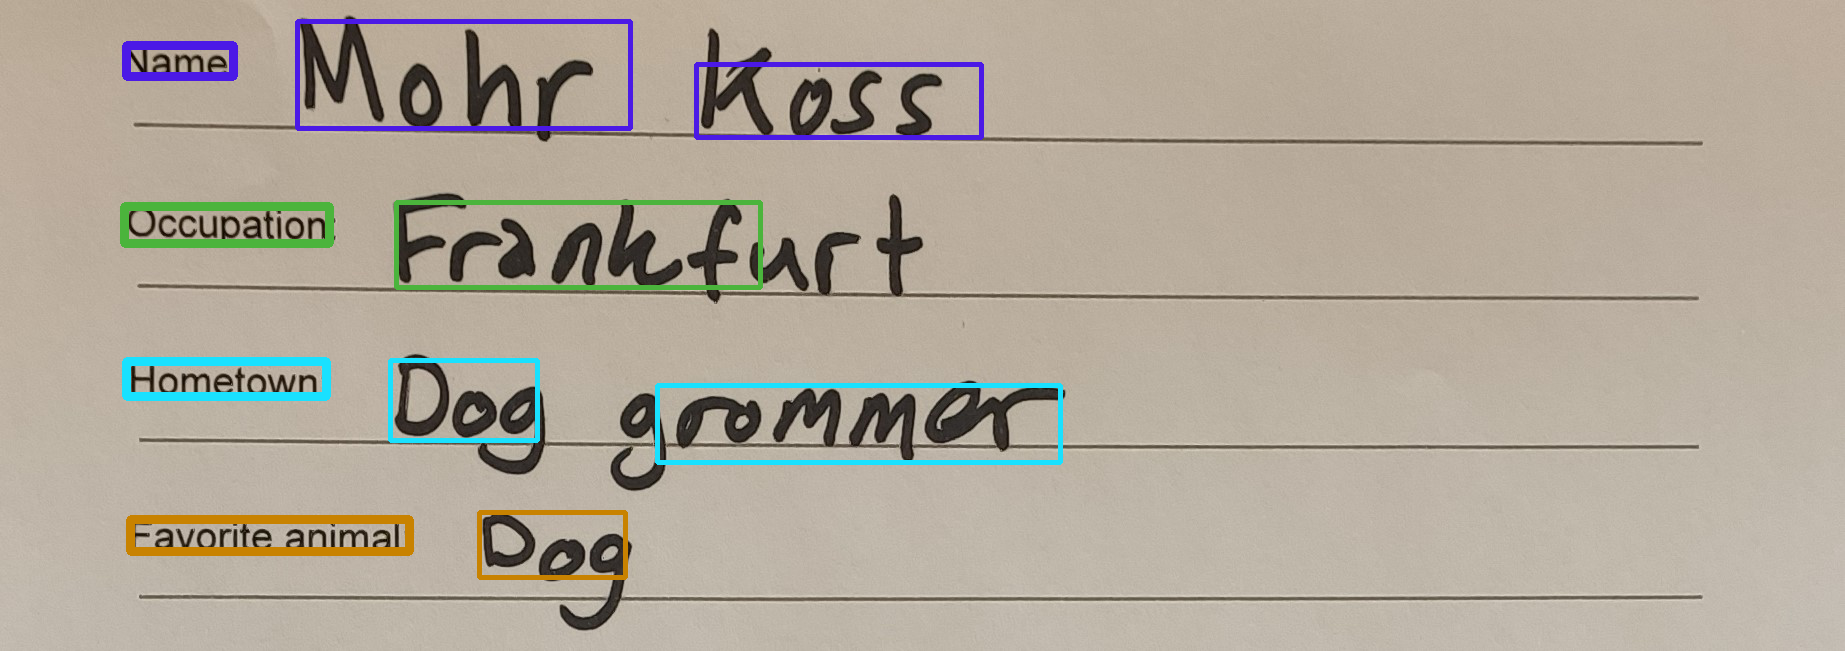 Name Mohr Koss
Occupation: Frankfurt
Hometown Dog grommer
Favorite animal Dog